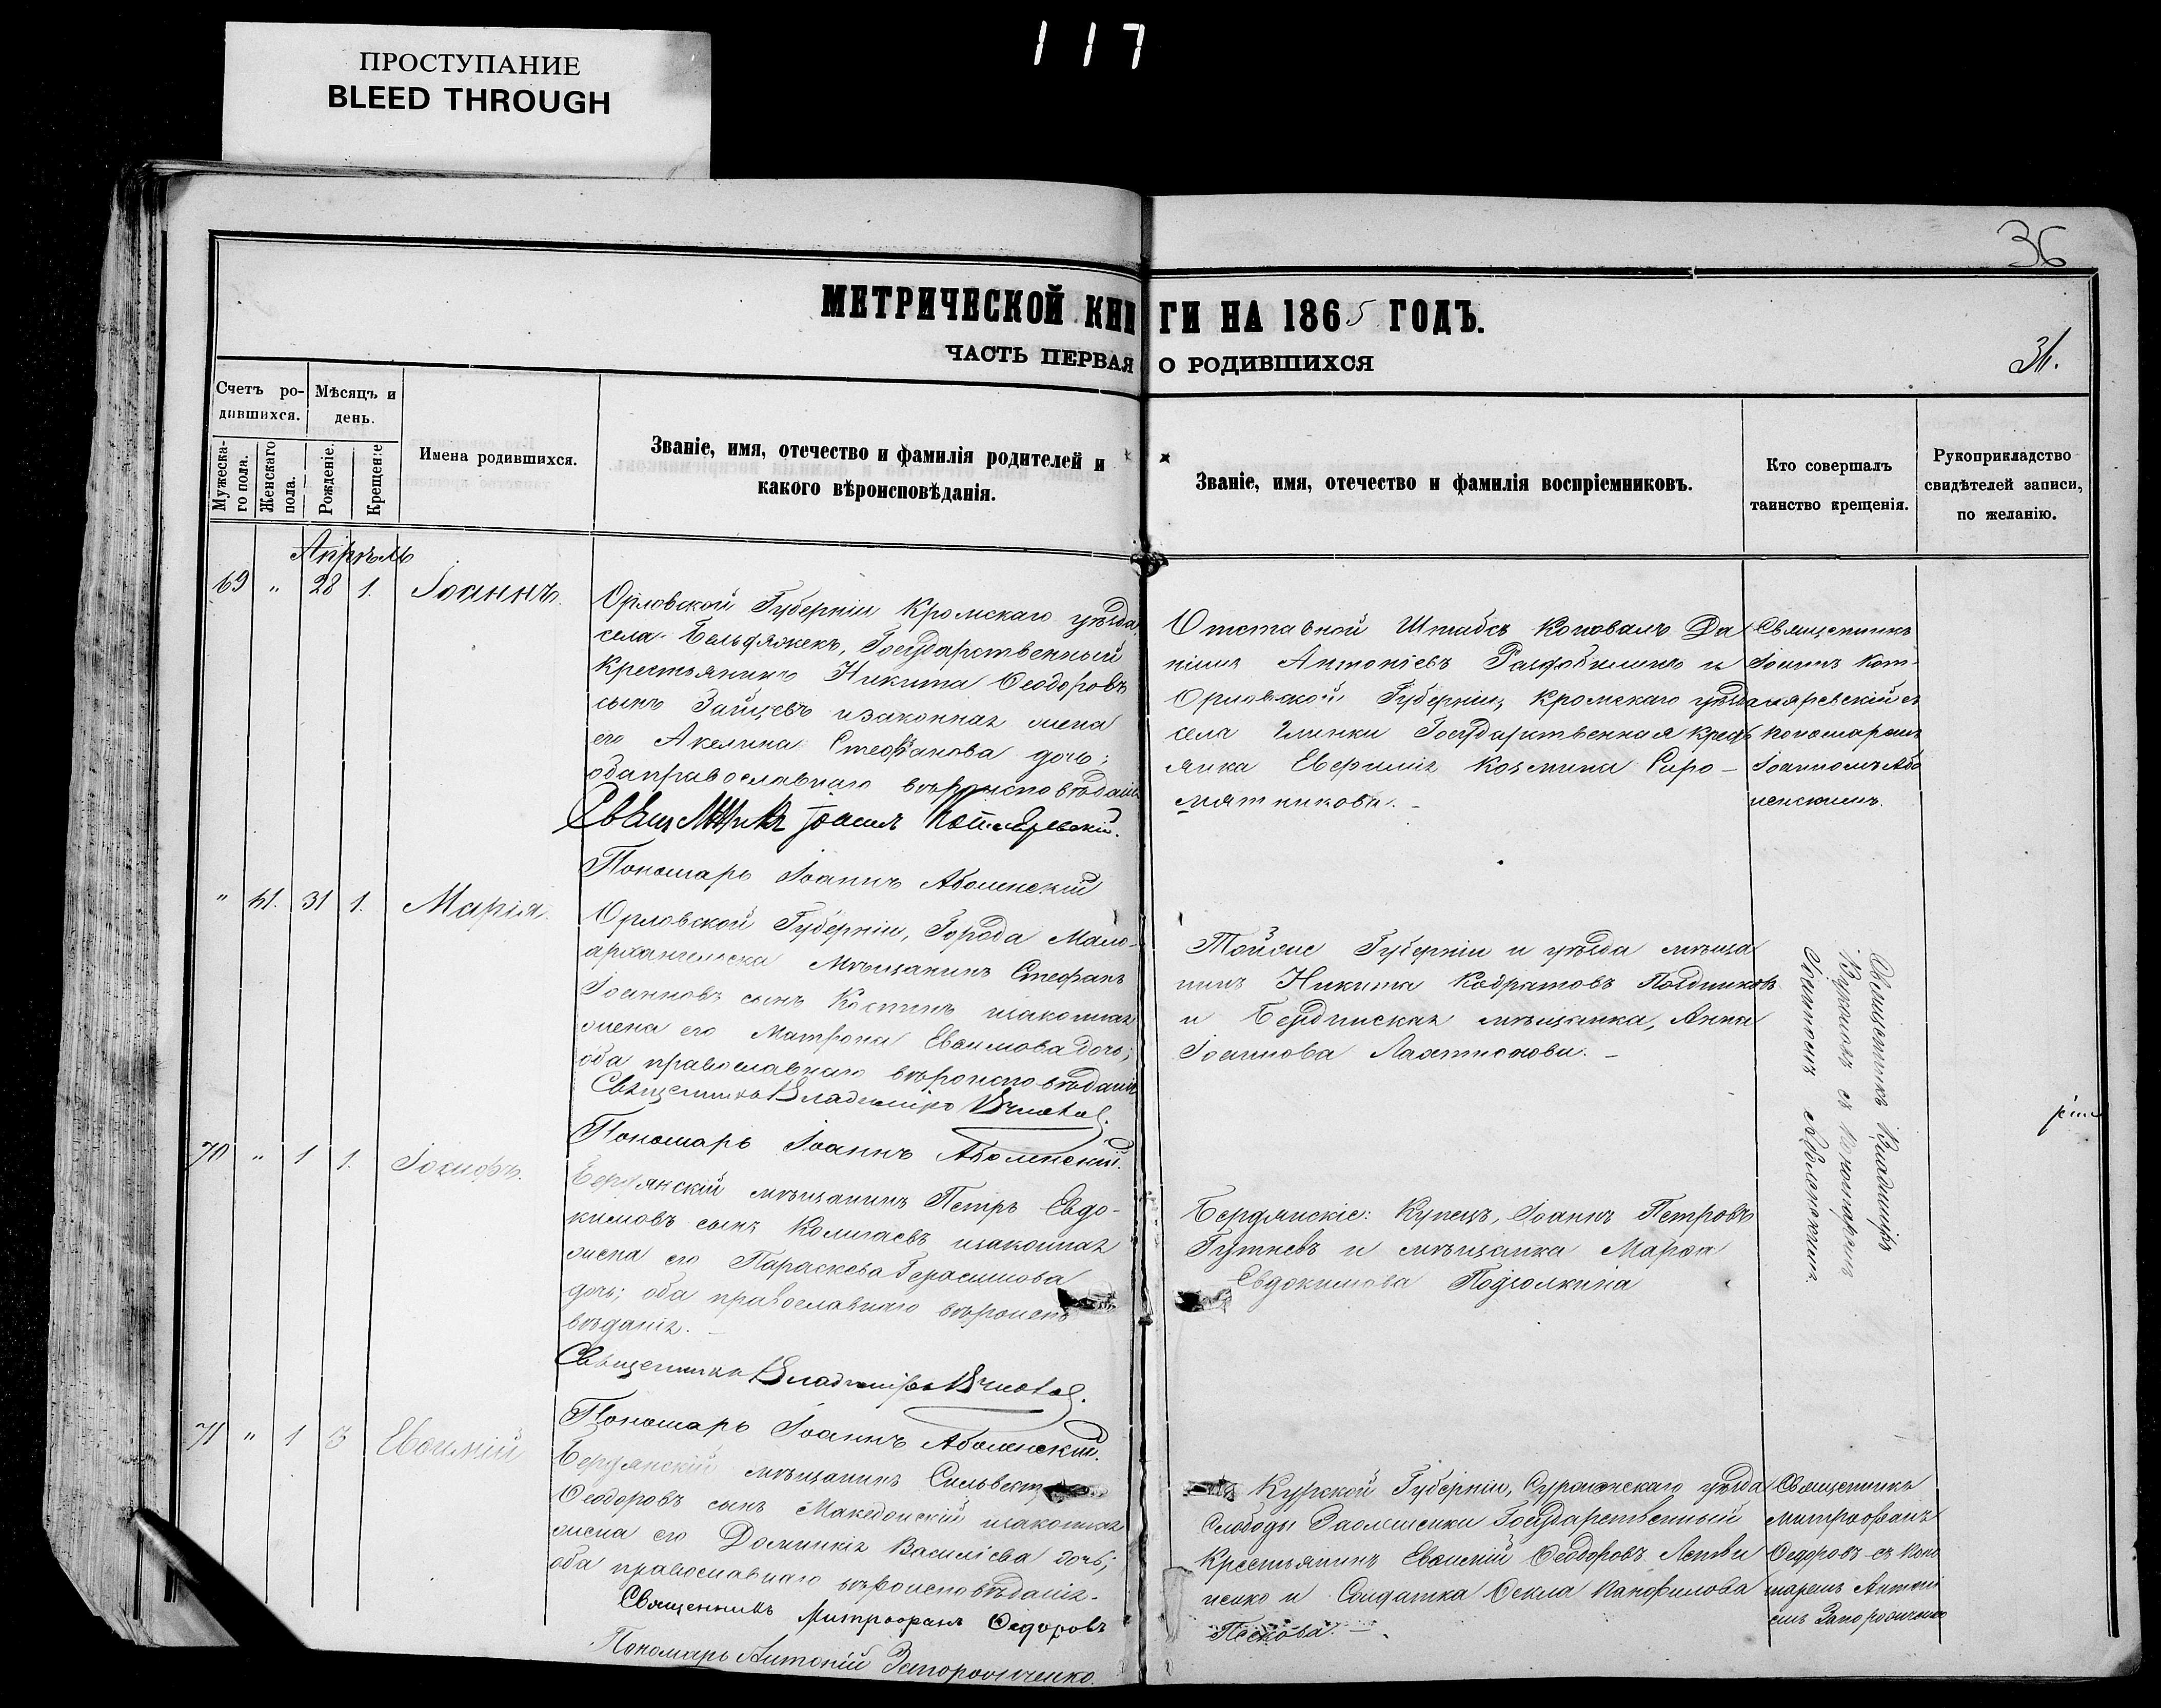 117
ПРОСТУПАНИЕ
BLEED THROUGH
36
МЕТРИЧЕСКОЙ КНИГИ НА 1865 ГОДЪ.
ЧАСТЬ ПЕРВАЯ О РОДИВШИХСЯ
31.
Счетъ ро-
дившихся.
Мѣсяцъ и
день.
Мужеска-
го пола.
Женскаго
пола.
Рожденіе.
Крещеніе
Имена родившихся.
Званіе, имя, отечество и фамилія родителей и
какого вѣроисповѣданія.
Званіе, имя, отечество и фамилія воспріемниковъ.
Кто совершалъ
таинство крещенія.
Рукоприкладство
свидѣтелей записи,
по желанію.
Апрѣль
69 " 28 1. Іоаннъ.
Орловской Губерніи Кромскаго уѣзда
села Бельдяжекъ, Государственный
Крестьянинъ Никита Ѳеодоровъ
сынъ Зайцевъ и законная жена
его Акелина Стефанова дочь;
оба православнаго вѣроисповѣданія
Священникъ Іоаннъ Котляревскій.
Пономарь Іоаннъ Аболенскій
Отставной Штабсъ Коновалъ Да
ніилъ Антоніевъ и
Орловской Губерніи, Кромскаго уѣзда
села Глинки Государственная Крест
янка Козмина Сыро-
мятникова. –
Священникъ
Іоаннъ Кот-
ляревскій съ
пономаремъ
Іоанномъ Або
ленскимъ.
" 41. 31 1. Марія.
Орловской Губерніи, Города Мало-
архангельска Мѣщанинъ Стефанъ
Іоанновъ сынъ Костинъ и законная
жена его Матрона Евѳимова дочь;
оба православнаго вѣроисповѣданія
Священникъ Владиміръ
Пономарь Іоаннъ Аболенскій.
Тойже Губерніи и уѣзда мѣща
нинъ Никита Кодратовъ
и Бердянская мѣщанка, Анна
Іоаннова Лактіонова. –
Священникъ Владиміръ
съ Пономаремъ
Іоанномъ Аболенскимъ.
70 " 1 1. Іосифъ.
Бердянскій мѣщанинъ Петръ Евдо-
кимовъ сынъ и законная
жена его Параскева Герасимова
дочь; оба православнаго вѣроиспо
вѣданія. –
Священникъ Владиміръ
Пономарь Іоаннъ Аболенскій.
Бердянскіе: Купецъ, Іоаннъ Петровъ
Гутневъ и мѣщанка Марѳа
Евдокимова Подголкина
71 " 1 3 Евѳимій
Бердянскій мѣщанинъ
Ѳеодоровъ сынъ Македонскій и законная
жена его Домникія Васильева дочь;
оба православнаго вѣроисповѣданія.
Священникъ Митрофанъ Ѳедоровъ
Пономарь Антоній Запорожченко.
Курской Губерніи, Суджанскаго уѣзда
Слободы Заолешенки Государственный
Крестьянинъ Евѳимій Ѳеодоровъ
и Солдатка Ѳекла Панфилова
Пескова. –
Священникъ
Митрофанъ
Ѳедоровъ съ Поно
маремъ Антоні
емъ Запорожченко